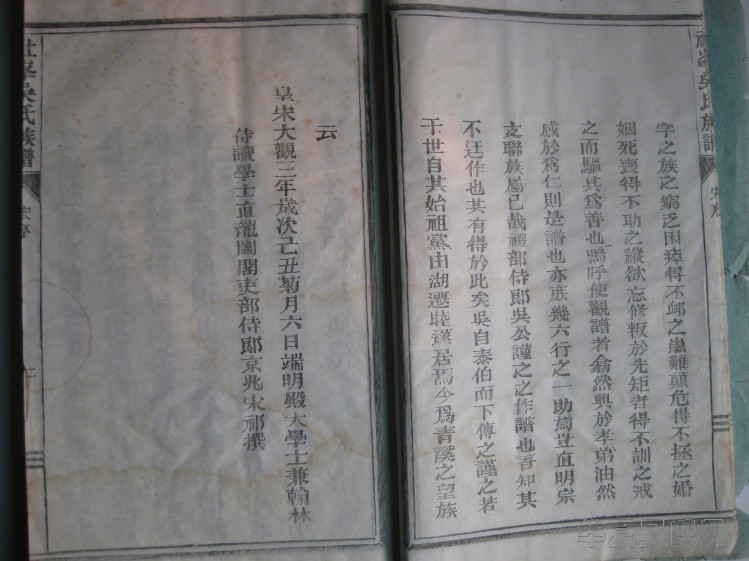 字之族之窮乏困瘁得不邮之患難顛危得不拯之婚
姻死喪得不助之縱欲忘修叛於先矩者得不訓之戒
之而驅其爲善也嗚呼使觀譜者翕然興於孝弟油然
感於爲仁則是譜也亦庶幾六行之一助焉豈直明宗
支聯族屬已哉禮部侍郎吳公謹之之作譜也吾知其
不迋作也其有得於此矣吳自泰伯而下傳之謹之若
干世自其始祖黨由湖遷睦遂居焉今爲青溪之望族
云
皇宋大觀三年歲次己丑菊月六日端明殿大學士兼翰林
侍讀學士直龍圖閣吏部侍郎京兆宋祁撰
吳氏族譜
宋序
吳氏族譜
宋序